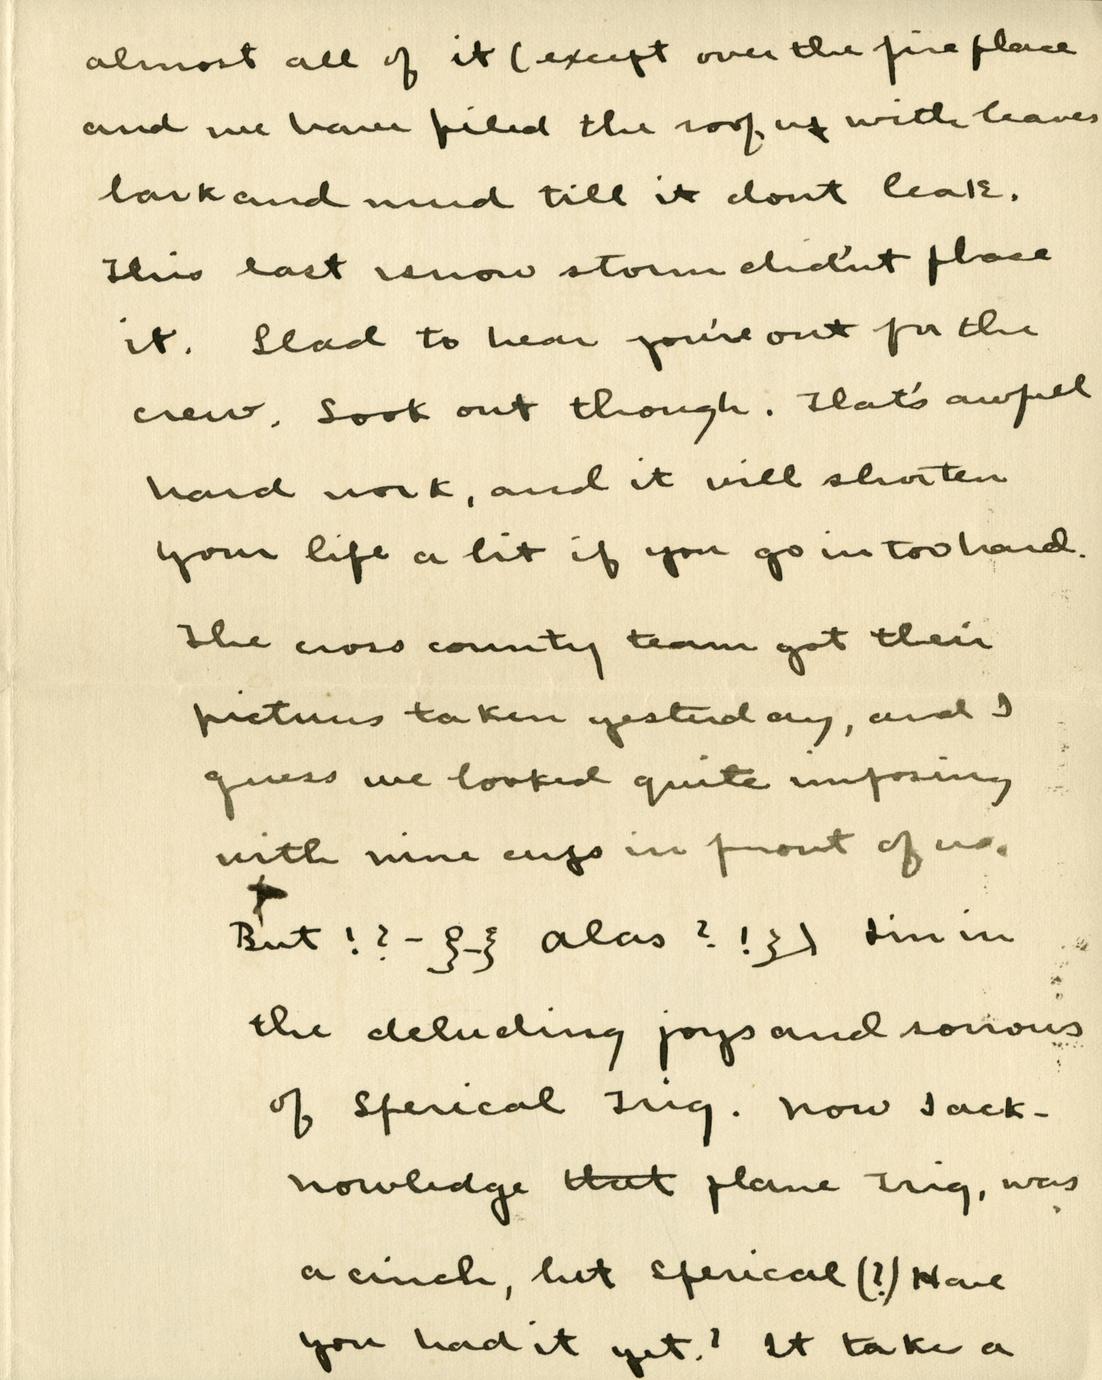 almost all of it (except over the fire place
and we have piled the roof up with leaves
bark and mud till it dont leak.
This last snow storm did'nt phase
it. Glad to hear you're out for the
crew. Look out though. That's awfull
hard work, and it will shorten
your life a bit if you go in too hard.
The cross county team got their
pictures taken yesterday, and I
guess we looked quite imposing
with nine cups in front of us.
But !?- alas ?! I'm in
the deluding joys and sorrows
of Sperical Trig. Now I ack-
nowledge that plane Trig, was
a cinch, but Sperical (?) Have
you had it yet.? It take a